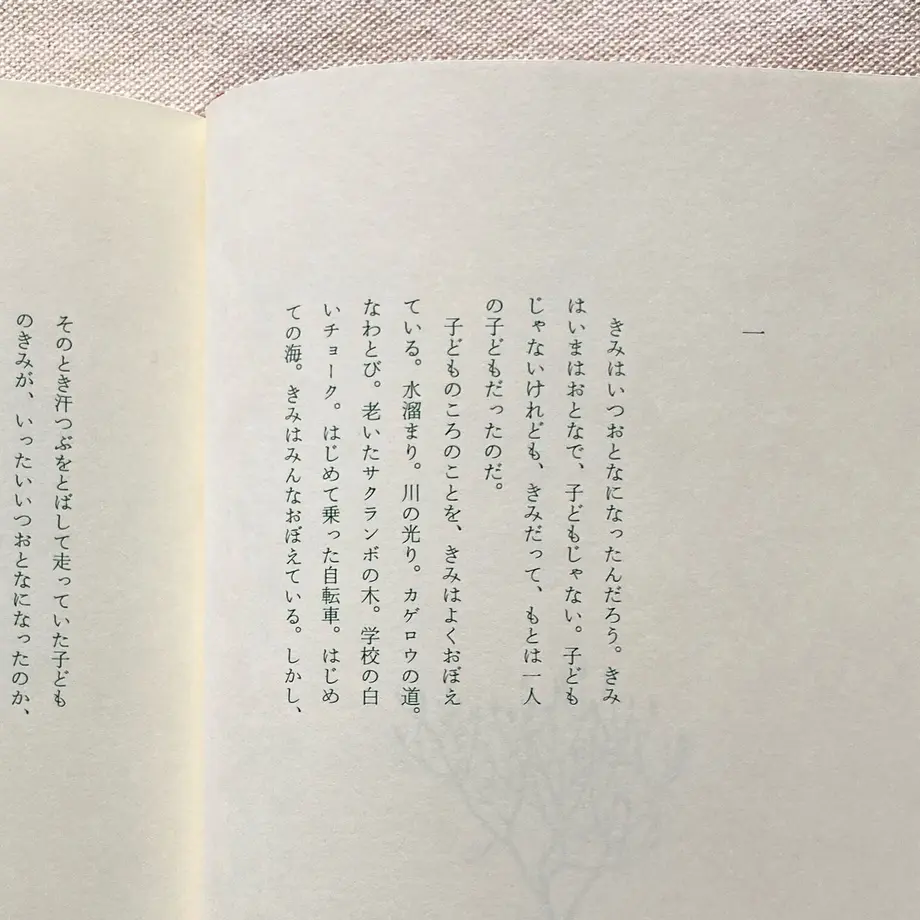 一
きみはいつおとなになったんだろう。きみ
はいまはおとなで、子どもじゃない。子ども
じゃないけれども、きみだって、もとは一人
の子どもだったのだ。
子どものころのことを、きみはよくおぼえ
ている。水溜まり。川の光り。カゲロウの道。
なわとび。老いたサクランボの木。学校の白
いチョーク。はじめて乗った自転車。はじめ
ての海。きみはみんなおぼえている。しかし、
そのとき汗つぶをとばして走っていた子ども
のきみが、いったいいつおとなになったのか、